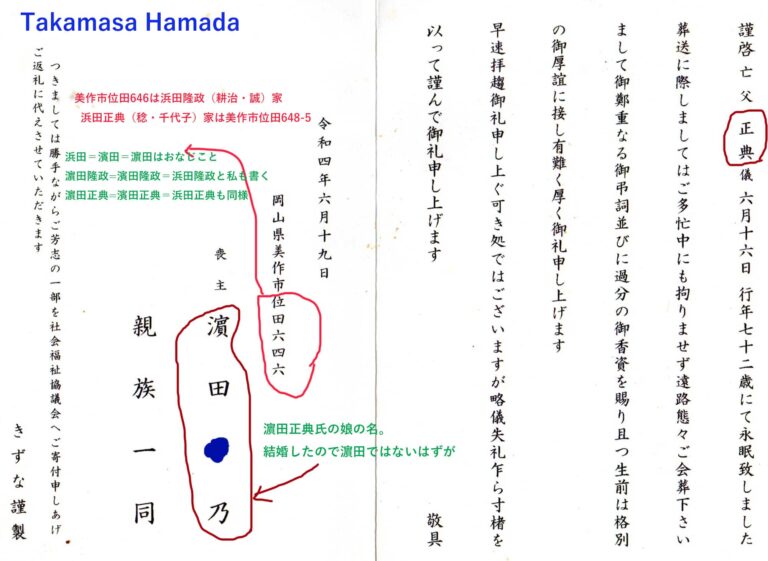 Takamasa Hamada
謹啓 亡父 正典 儀 六月十六日 行年七十二歳にて永眠致しました
葬送に際しましてはご多忙中にも拘りませず遠路態々ご会葬下さい
まして御鄭重なる御弔詞並びに過分の御香資を賜り且つ生前は格別
の御厚誼に接し有難く厚く御礼申し上げます
早速拝趨御礼申し上ぐ可き処ではございますが略儀失礼乍ら寸楮を
以って謹んで御礼申し上げます
敬具
令和四年六月十九日
岡山県美作市位田六四六
喪主 濵田 乃
親族一同
つきましては勝手ながらご芳志の一部を社会福祉協議会へご寄付申しあげ
ご返礼に代えさせていただきます
きずな謹製
美作市位田646は浜田隆政（耕治・誠）家
浜田正典（稔・千代子）家は美作市位田648-5
浜田＝濱田＝濵田はおなじこと
濵田隆政=濱田隆政＝浜田隆政と私も書く
濵田正典=濱田正典＝浜田正典も同様
濵田正典氏の娘の名。
結婚したので濵田ではないはずが